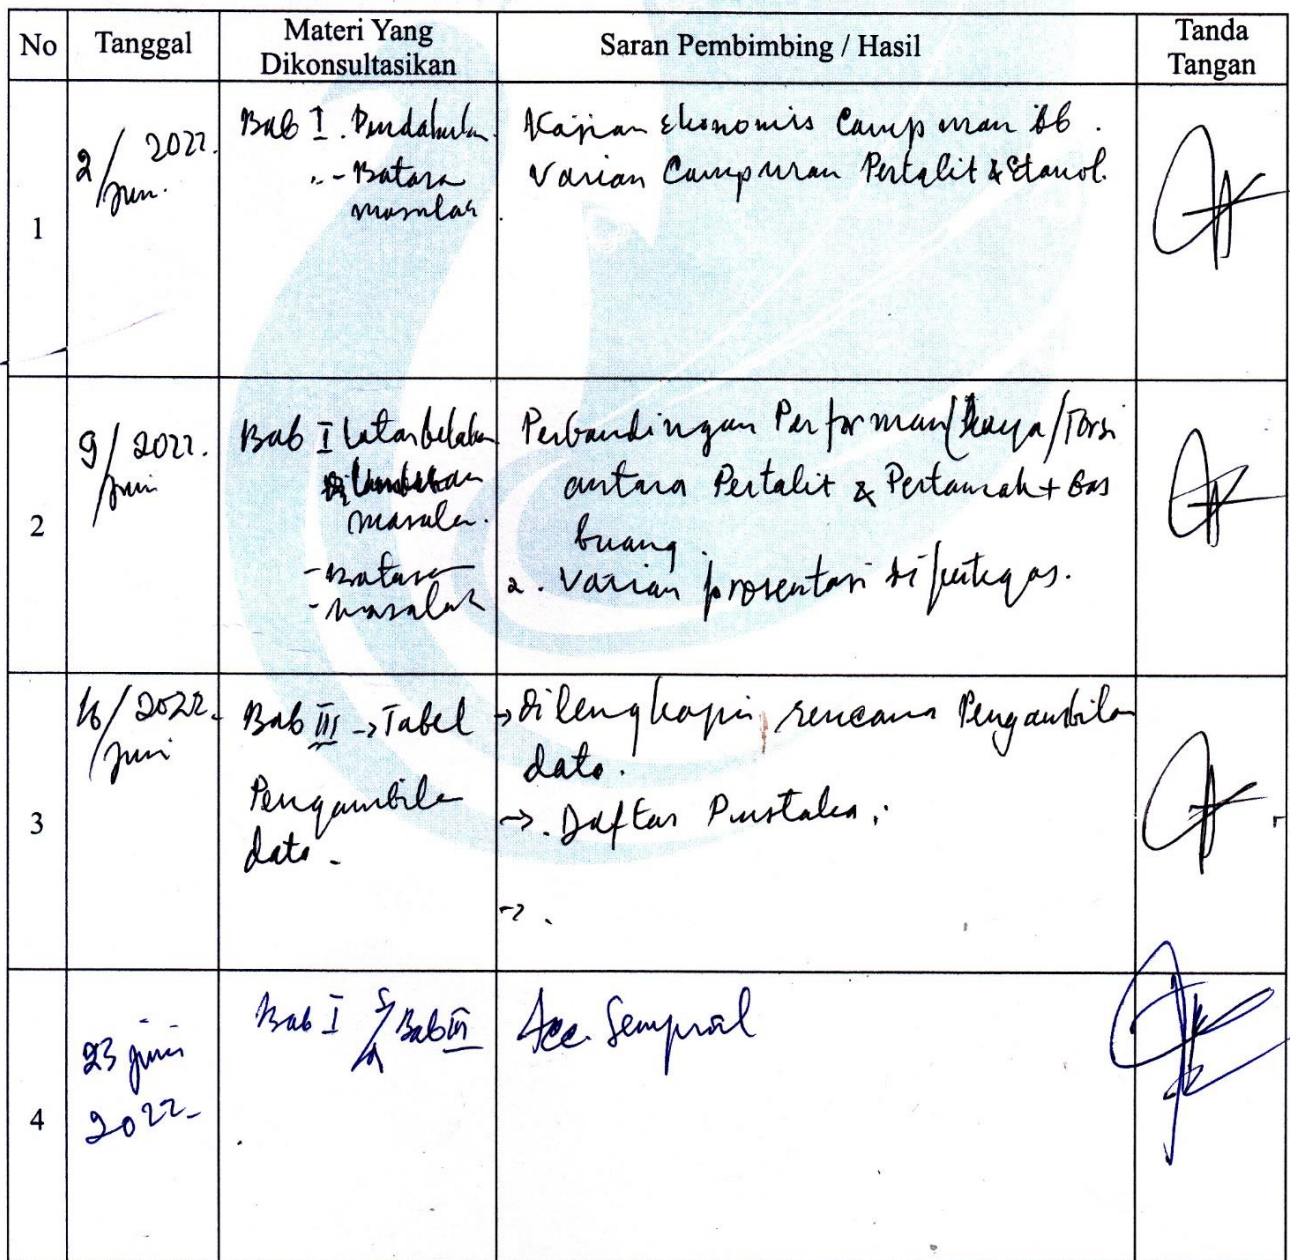 No Tanggal Materi Yang Dikonsultasikan Saran Pembimbing / Hasil Tanda Tangan
1
2/Juni 2022.
Bab I. Pendahulu
- Batasa
masalah
Kajian ekonomis Campuran bb.
Varian Campuran Pertalit & Etanol.
2
9/Juni 2022.
Bab I latar belakan
masala.
- Batasa
- masalah
Perbandingan Performan/daya/Torsi
antara Pertalit & Pertamah + Gas
buang.
2. Varian prosentasi dipertegas.
3
16/Juni 2022.
Bab III -> Tabel
Pengambila
data.
-> dilengkapi rencana Pengambilan
data.
-> . Daftar Pustaka.
-> .
4
23 juni
2022-
Bab I s/d Bab III
Acc. Sempral